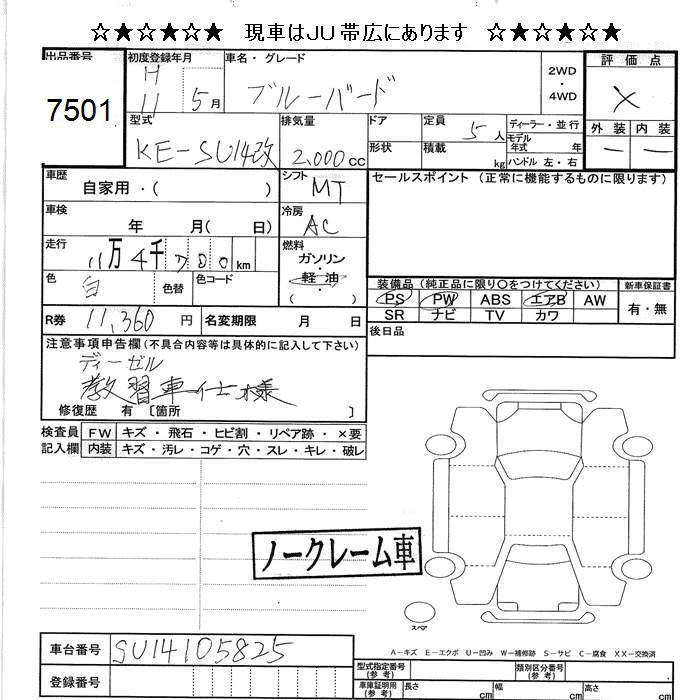 ☆★☆★☆★☆ 現車はＪＵ帯広にあります ☆★☆★☆★☆
出品番号 初度登録年月 車名・グレード 評価点
7501 H 11 5月 ブルーバード 2WD 4WD ×
型式 排気量 ドア 定員 5人 ディーラー・並行 外装 内装
KE-SU14改 2,000cc 形状 積載 kg モデル年式 年 ハンドル 左・右 ー ー
車歴 自家用・( ) シフト MT セールスポイント (正常に機能するものに限ります)
車検 年 月( 日) 冷房 AC
走行 11万4千700km 燃料 ガソリン・軽油・( )
色 白 色替 色コード 装備品 (純正品に限り○をつけてください) 新車保証書
PS PW ABS エアB AW 有・無
R券 11,360円 名変期限 月 日 SR ナビ TV カワ
注意事項申告欄(不具合内容等は具体的に記入して下さい) 後日品
ディーゼル
教習車仕様
修復歴 有 [箇所 ]
検査員 FW キズ・飛石・ヒビ割・リペア跡・×要
記入欄 内装 キズ・汚レ・コゲ・穴・スレ・キレ・破レ
ノークレーム車
スペア
A－キズ E－エクボ U－凹み W－補修跡 S－サビ C－腐食 XX－交換済
車台番号 SU14105825 型式指定番号(参考) 類別区分番号(参考)
登録番号 車庫証明用(参考) 長さ cm 幅 cm 高さ cm